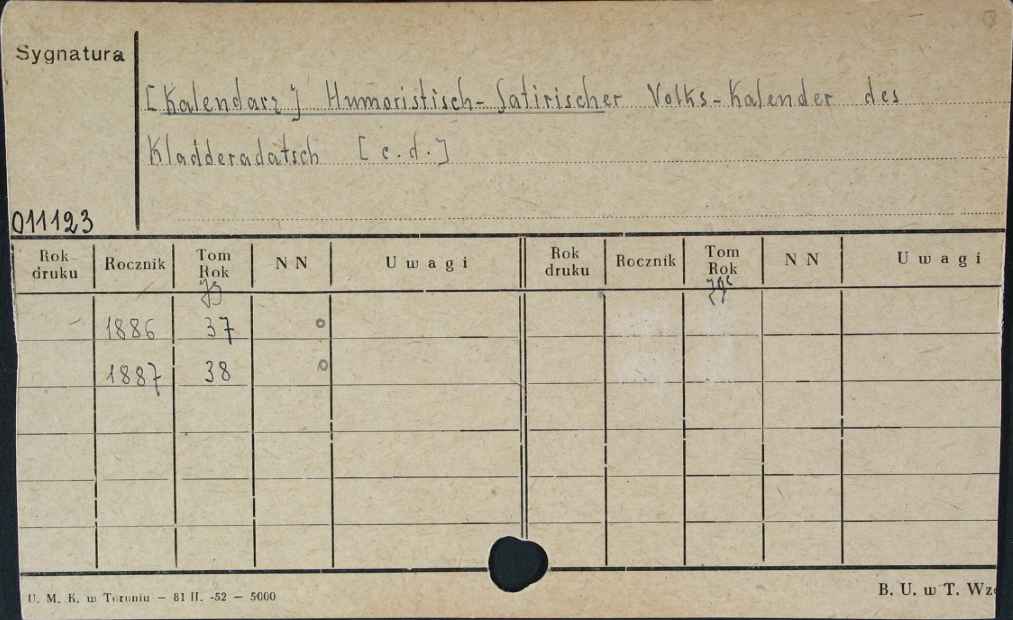 Sygnatura
[Kalendarz] Humoristisch-Satirischer Volks-Kalender des
Kladderadatsch [c.d.]
011123
Rok druku Rocznik Tom Rok NN Uwagi Rok druku Rocznik Tom Rok NN Uwagi
1886 37
1887 38
U. M. K. w Toruniu — 81 II. -52 — 5000
B. U. w T. Wz